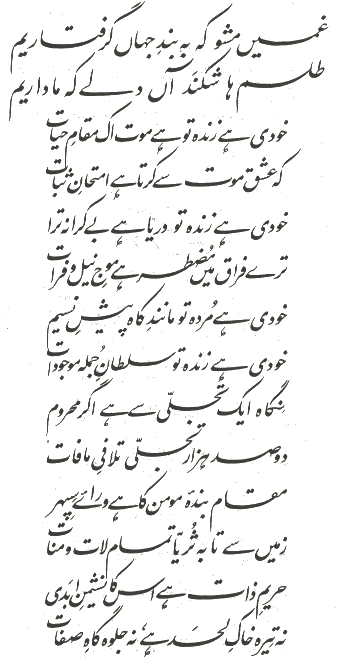 غمیں مشو کہ بہ بندِ جہاں گرفتاریم
طلسم ہا شکند آں دلے کہ ما داریم
خودی ہے زندہ تو ہے موت اک مقامِ حیات
کہ عشق موت سے کرتا ہے امتحانِ ثبات
خودی ہے زندہ تو دریا ہے بے کرانہ ترا
ترے فراق میں مُضطر ہے موجِ نیل و فرات
خودی ہے مُردہ تو مانندِ کاہ پیشِ نسیم
خودی ہے زندہ تو سلطانِ جملہ موجودات
نِگاہ ایک تجلّی سے ہے اگر محروم
دو صد ہزار تجلّی تلافیِ مافات
مقام بندۂ مومن کا ہے ورائے سپہر
زمیں سے تا بہ ثُریّا تمام لات و منات
حریمِ ذات ہے اس کا نشیمنِ ابَدی
نہ تیرہ خاکِ لحَد ہے، نہ جلوہ گاہِ صفات